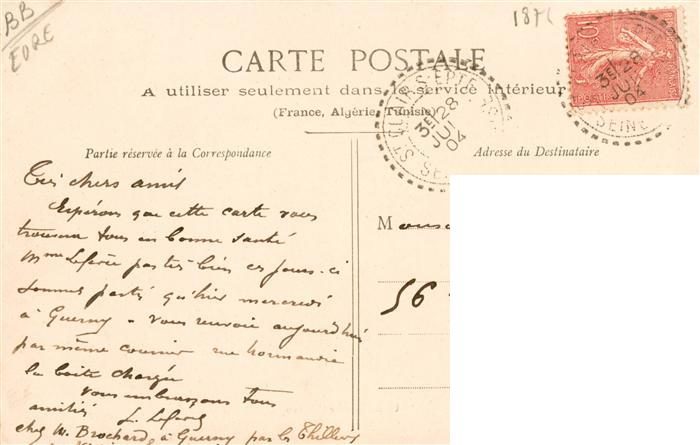 BB
EURE
187
CARTE POSTALE
A utiliser seulement dans le service intérieur
(France, Algérie, Tunisie)
Partie réservée à la Correspondance
Adresse du Destinataire
10
3E 28
JUL
04
SEINE
ST CLAIR S EPTE
3E 28
JUL
04
Très chers amis
Espérons que cette carte vous
trouvera tous en bonne santé
Mme Lefevre pas très bien ces jours-ci
sommes partis qu'hier mercredi
à Guerny - vous renvoie aujourd'hui
par même courrier rue Normandie
la boite chargée
Vous embrassons tous
amitiés L. Lefevre
chez M. Brochard à Guerny par les Thilliers
M
56